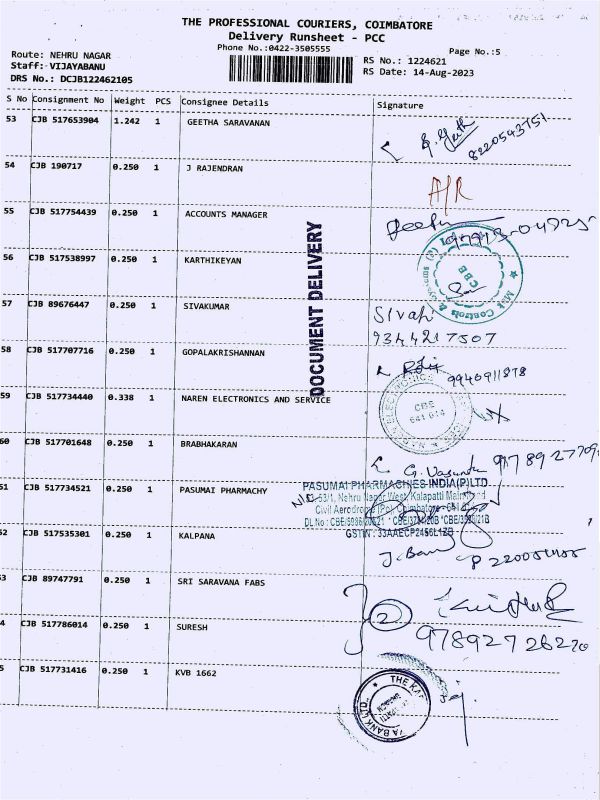 THE PROFESSIONAL COURIERS, COIMBATORE
Delivery Runsheet - PCC
Phone No.:0422-3505555
Page No.:5
Route: NEHRU NAGAR
Staff: VIJAYABANU
DRS No.: DCJB122462105
RS No.: 1224621
RS Date: 14-Aug-2023
S No Consignment No Weight PCS Consignee Details Signature
53 CJB 517653904 1.242 1 GEETHA SARAVANAN
8220543751
54 CJB 190717 0.250 1 J RAJENDRAN
A/R
55 CJB 517754439 0.250 1 ACCOUNTS MANAGER
56 CJB 517538997 0.250 1 KARTHIKEYAN
CBE
DOCUMENT DELIVERY
57 CJB 89676447 0.250 1 SIVAKUMAR
9344217507
58 CJB 517707716 0.250 1 GOPALAKRISHNAN
9940911878
59 CJB 517734440 0.338 1 NAREN ELECTRONICS AND SERVICE
CBE
641 014
60 CJB 517701648 0.250 1 BRABHAKARAN
PASUMAI PHARMACHIES INDIA(P)LTD
61 CJB 517734521 0.250 1 PASUMAI PHARMACHY
53/1, Nehru Nagar West, Kalapatti Main
Civil Aerodrome (Po), Coimbatore
GSTIN : 33AAECP2456L1ZB
52 CJB 517535301 0.250 1 KALPANA
53 CJB 89747791 0.250 1 SRI SARAVANA FABS
4 CJB 517786014 0.250 1 SURESH
2
9789272622
5 CJB 517731416 0.250 1 KVB 1662